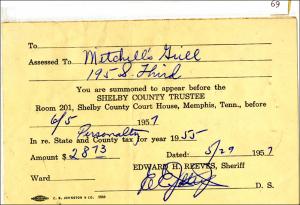 69
To
Assessed To Mitchell's Grill
195 S. Third
You are summoned to appear before the
SHELBY COUNTY TRUSTEE
Room 201, Shelby County Court House, Memphis, Tenn., before
6/5 1957
Personalty
In re. State and County tax for year 1955
Amount $ 28 73 Dated: 5/29 1957
EDWARD H. REEVES, Sheriff
Ward
D. S.
C. B. JOHNSTON & CO.